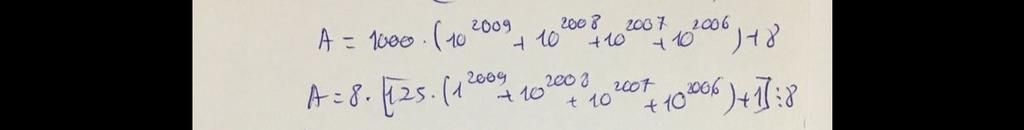 A = 1000 . (10^2009 + 10^2008 + 10^2007 + 10^2006) + 8
A = 8 . [125 . (1^2009 + 10^2008 + 10^2007 + 10^2006) + 1] ⋮ 8